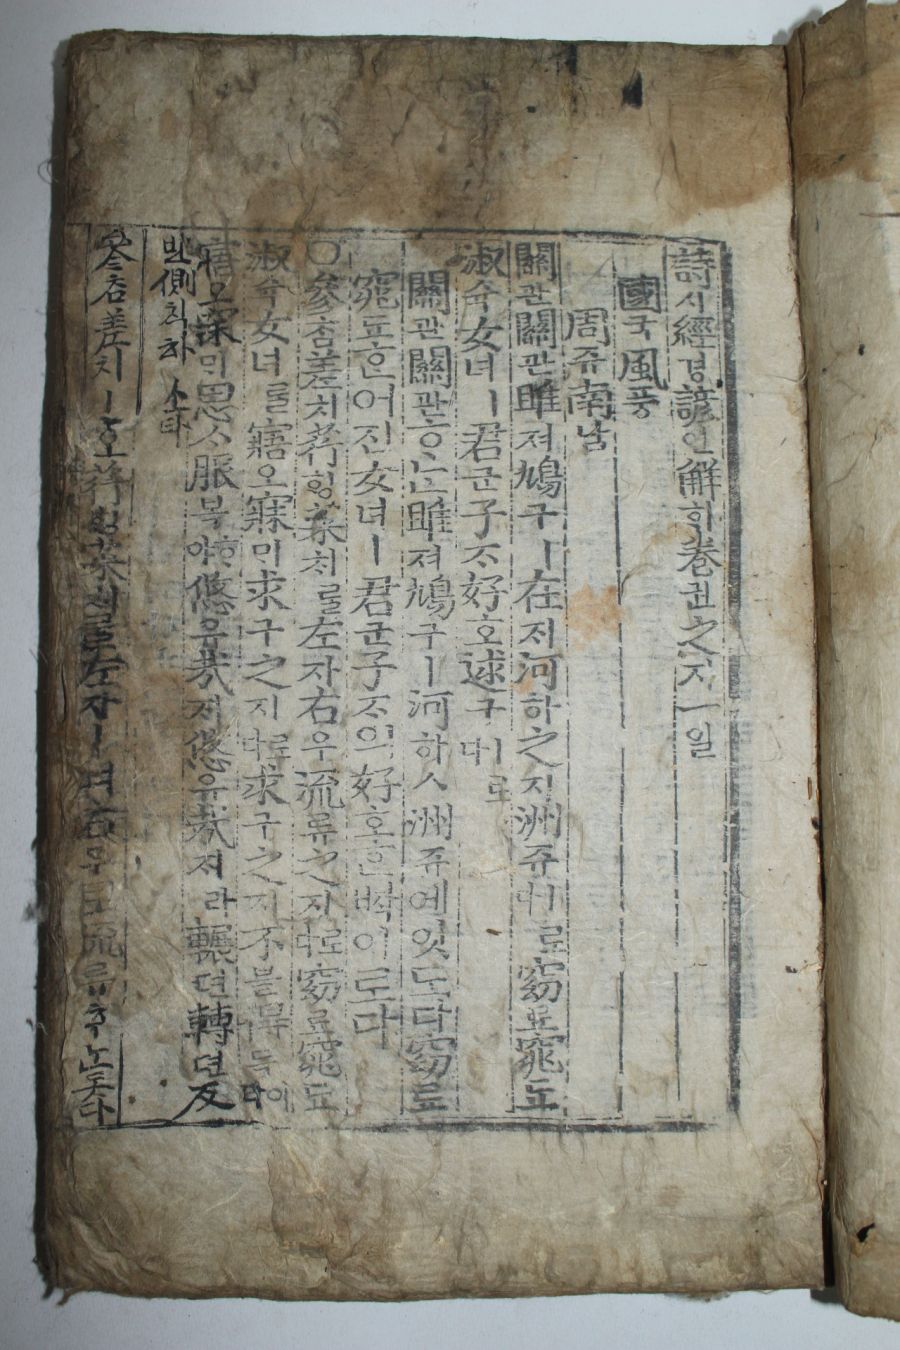 詩시經경諺언解ᄒᆡ卷권之지一일
國국風풍
周쥬南남
關관關관雎져鳩구ㅣ在ᄌᆡ河하之지洲쥬ㅣ로窈요窕됴
淑슉女녀ㅣ君군子ᄌᆞ好호逑구ㅣ로다
關관關관ᄒᆞᄂᆞᆫ雎져鳩구ㅣ河하ㅅ洲쥬에잇도다窈요
窕됴ᄒᆞᆫ어진女녀ㅣ君군子ᄌᆞ의好호ᄒᆞᆫᄧᅡᆨ이로다
○參ᄎᆞᆷ差치荇ᄒᆡᆼ菜ᄎᆡ를左자右우流류之지로다窈요窕됴
淑슉女녀를寤오寐ᄆᆡ求구之지로다求구之지不블得득이라
寤오寐ᄆᆡ思ᄉᆞ服복ᄒᆞ야悠유哉ᄌᆡ悠유哉ᄌᆡ라輾뎐轉뎐反
반側측ᄒᆞ소라
參ᄎᆞᆷ差치ㅣᄒᆞᆫ荇ᄒᆡᆼ菜ᄎᆡ를左자ㅣ며右우로流류ᄒᆞ놋다